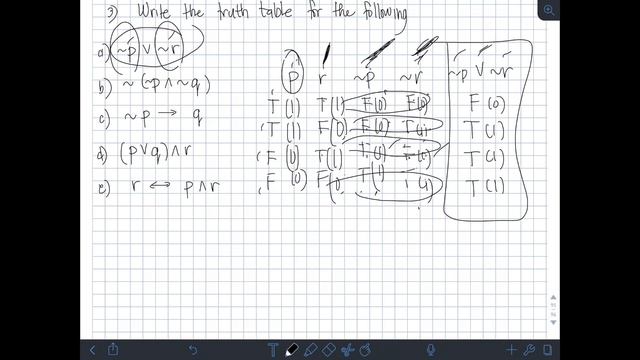 3) Write the truth table for the following
a) ~p ∨ ~r
b) ~(~p ∧ ~q)
c) ~p → q
d) (p ∨ q) ∧ r
e) r ↔ p ∧ r
p r ~p ~r ~p ∨ ~r
T (1) T (1) F (0) F (0) F (0)
T (1) F (0) F (0) T (1) T (1)
F (0) T (1) T (1) F (0) T (1)
F (0) F (0) T (1) T (1) T (1)